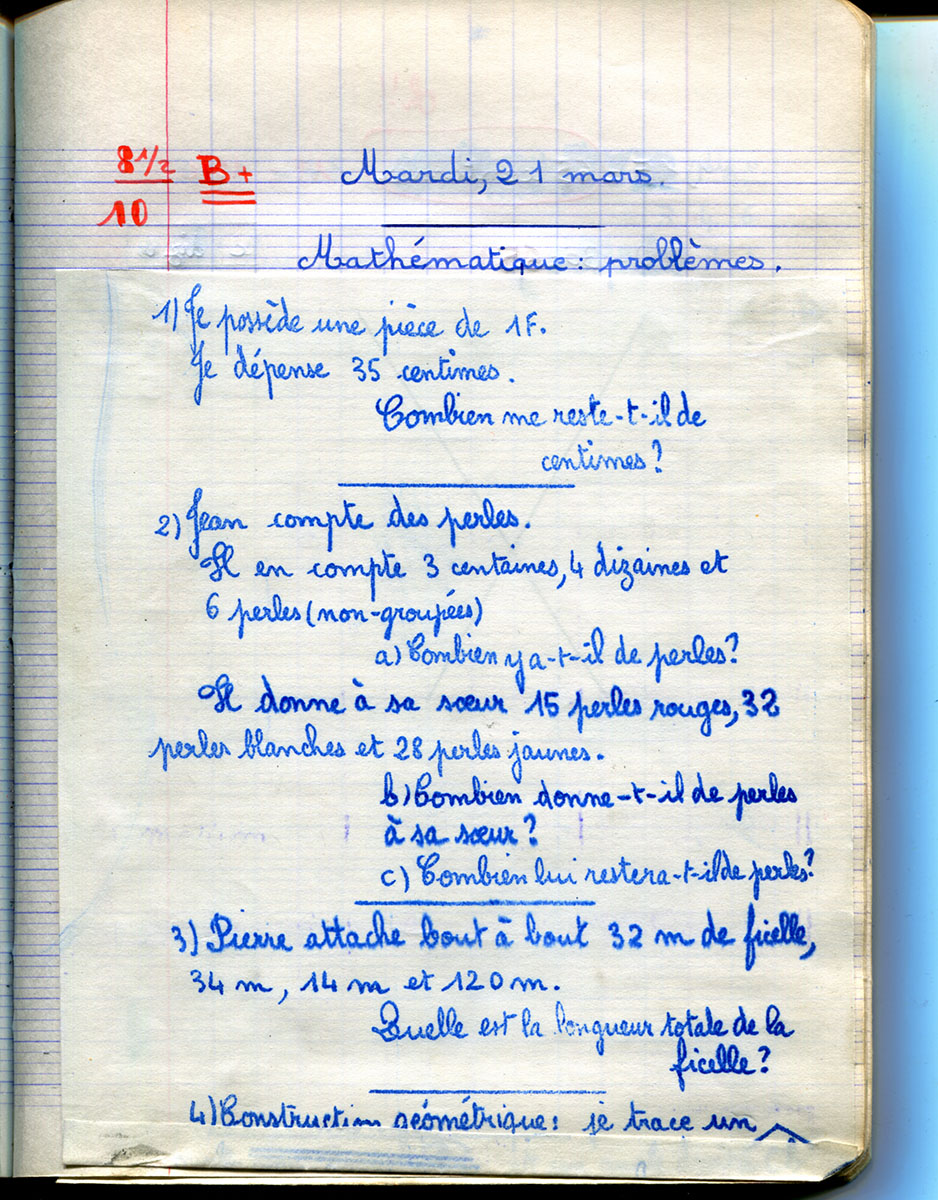 8 1/2
10
B+
Mardi, 21 mars.
Mathématique : problèmes.
1) Je possède une pièce de 1F.
Je dépense 35 centimes.
Combien me reste-t-il de
centimes ?
2) Jean compte des perles.
Il en compte 3 centaines, 4 dizaines et
6 perles (non-groupées)
a) Combien y a-t-il de perles ?
Il donne à sa sœur 15 perles rouges, 32
perles blanches et 28 perles jaunes.
b) Combien donne-t-il de perles
à sa sœur ?
c) Combien lui restera-t-il de perles ?
3) Pierre attache bout à bout 32 m de ficelle,
34 m, 14 m et 120 m.
Quelle est la longueur totale de la
ficelle ?
4) Construction géométrique : je trace un